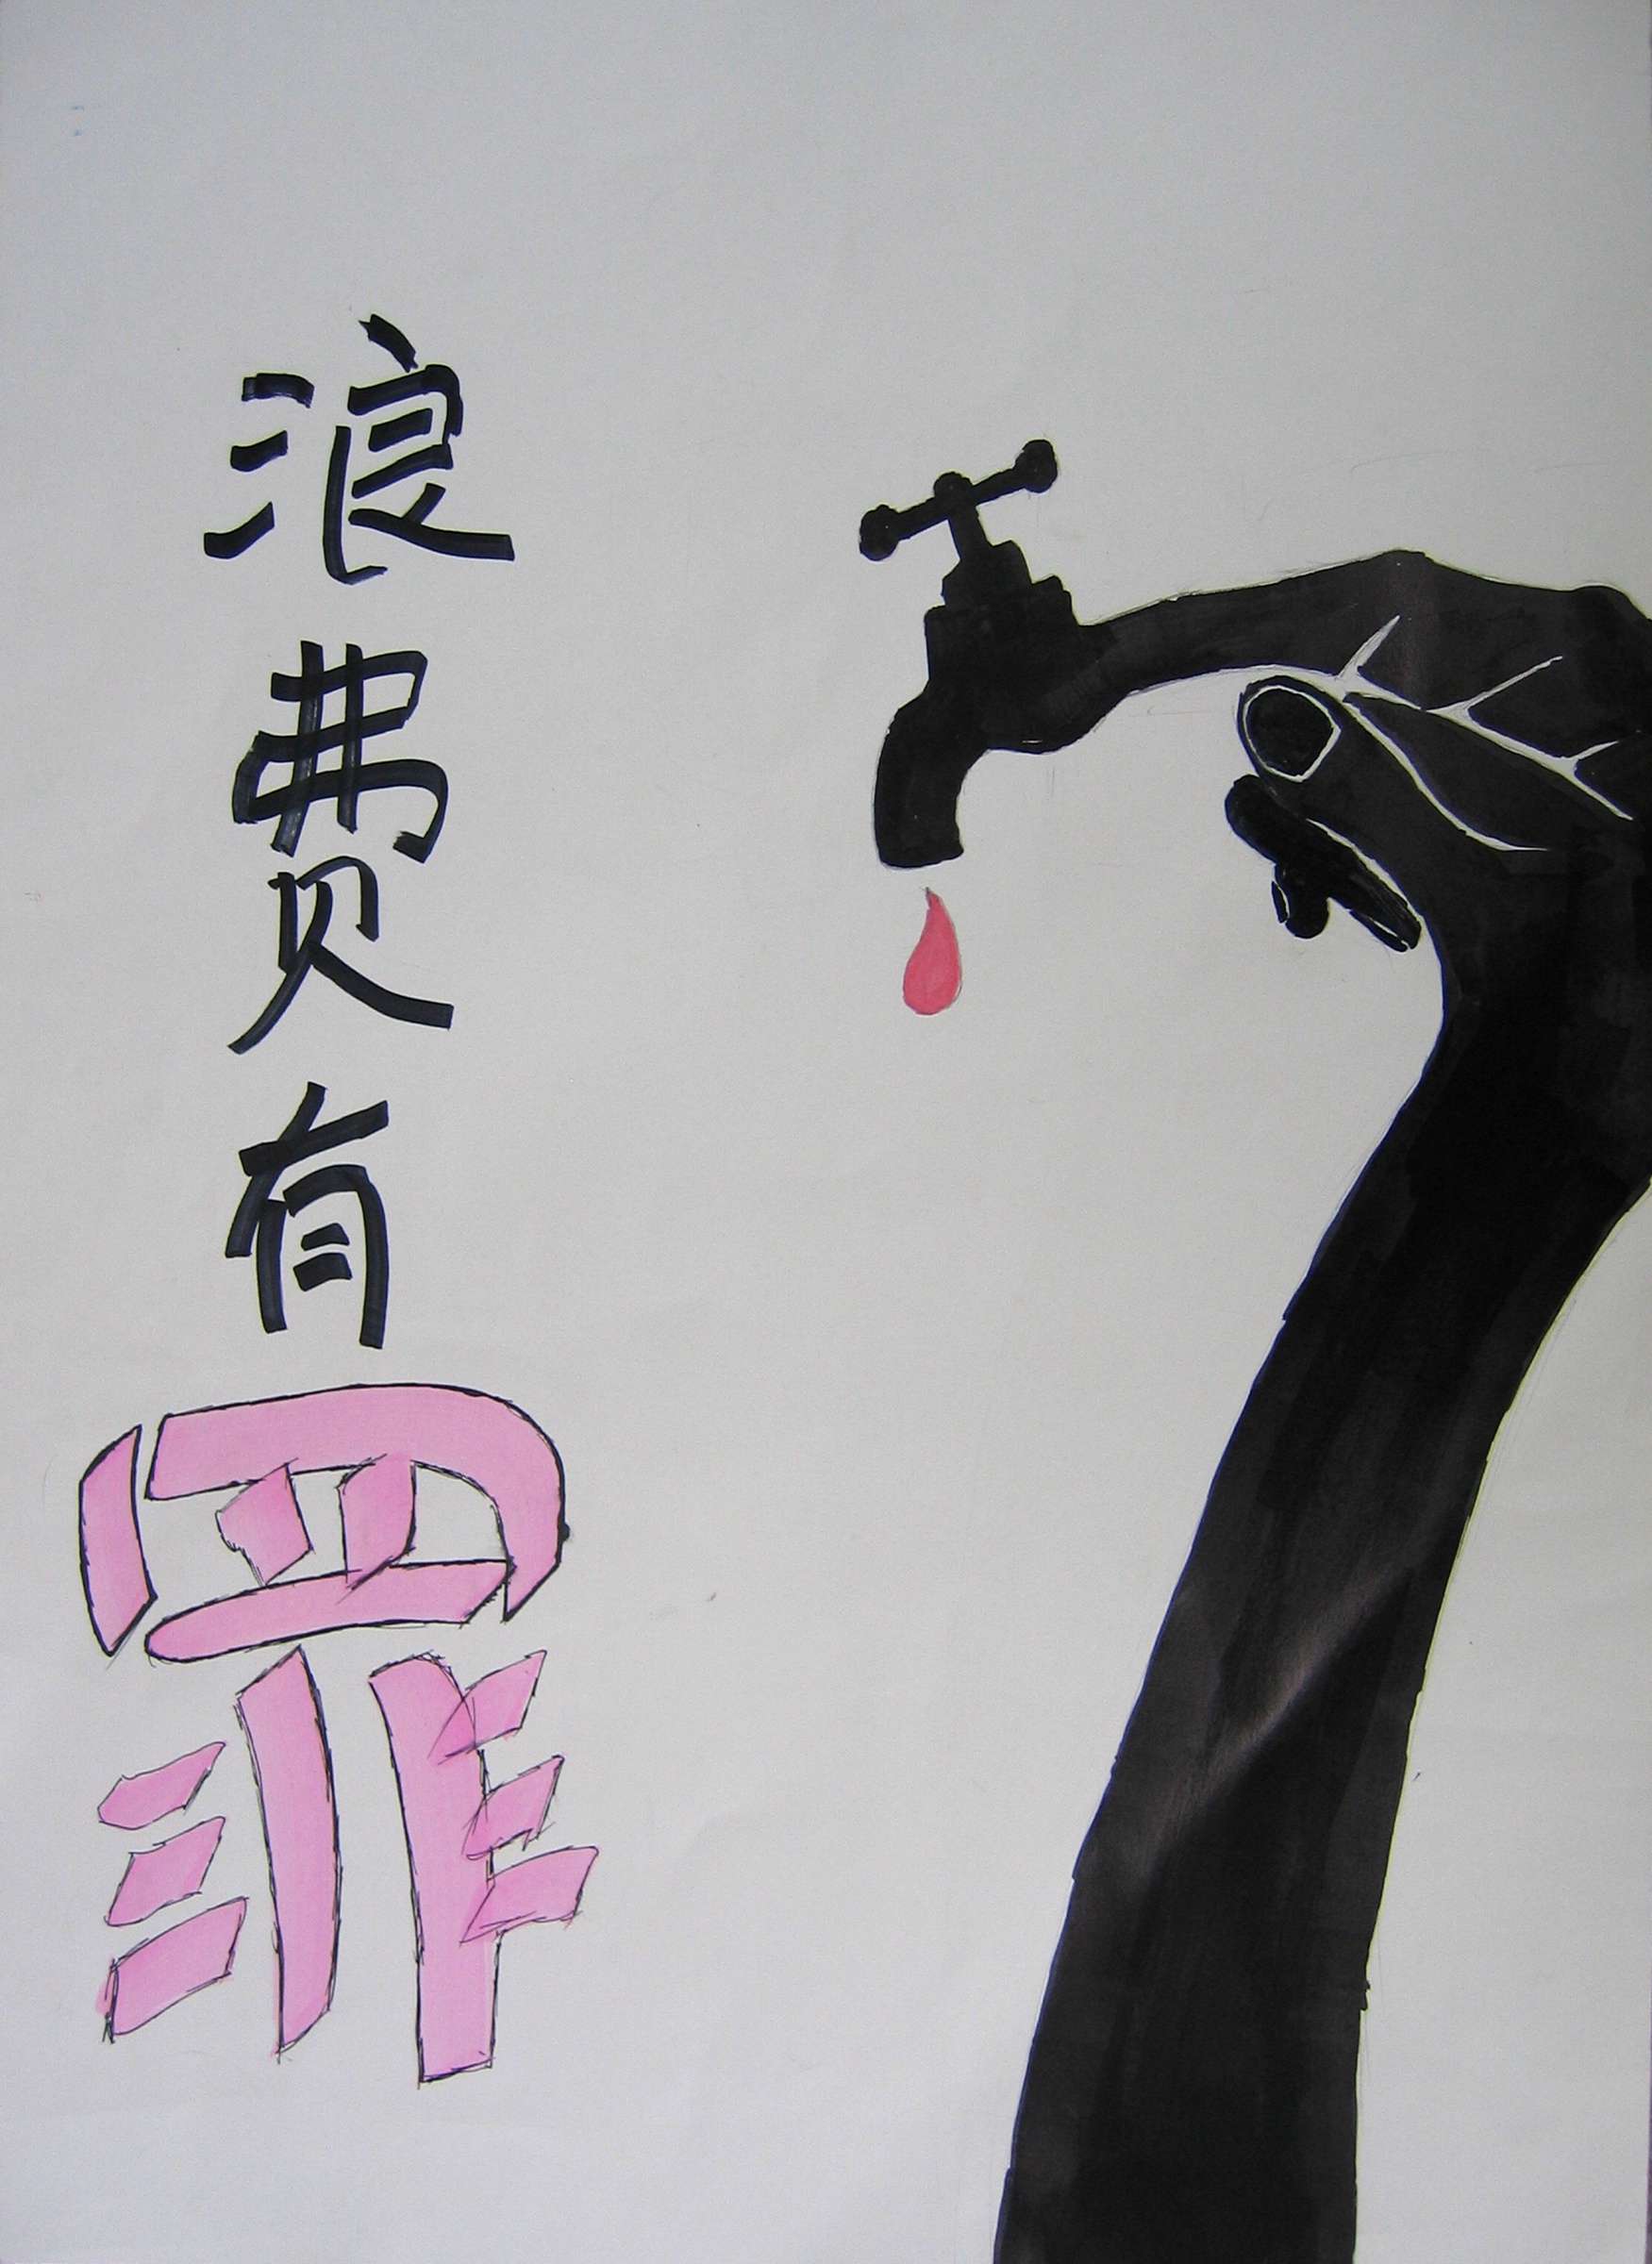 浪费有罪